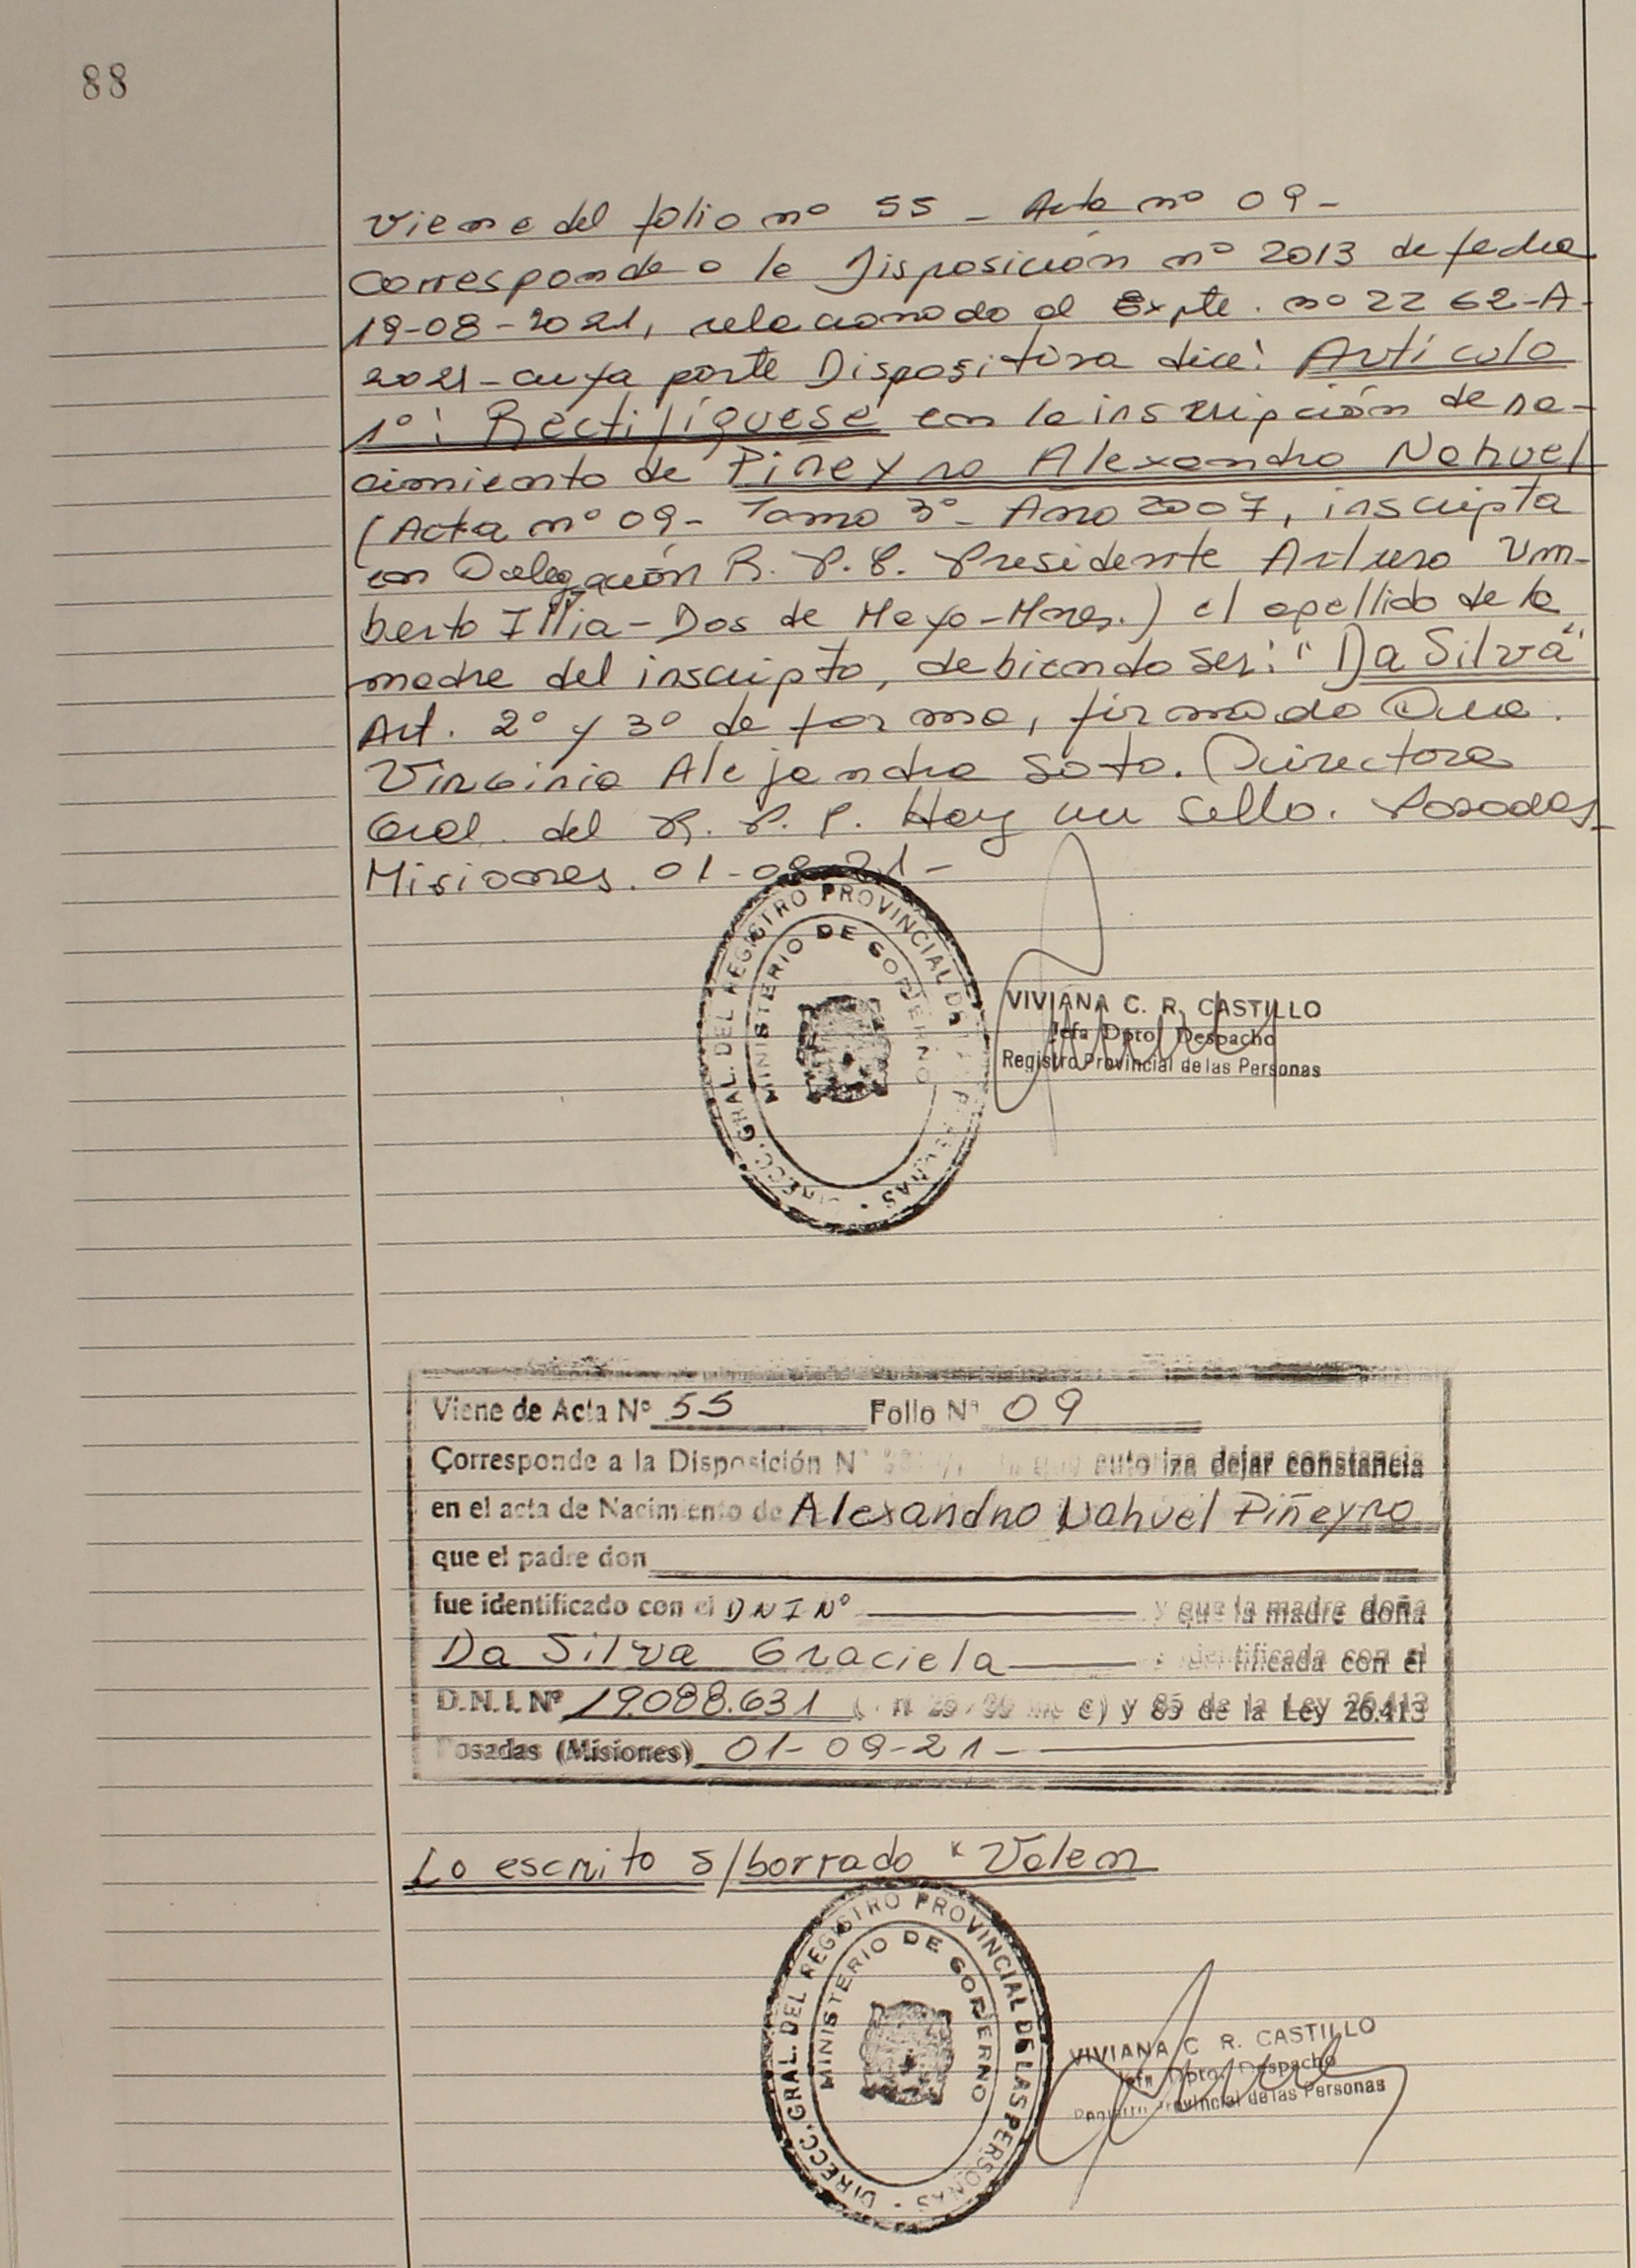 88
Viene del folio nº 55 - Acta nº 09 -
Corresponde a la Disposición nº 2013 de fecha
19-08-2021, relacionado al Expte. nº 2262-A-
2021 - cuya parte Dispositiva dice: Artículo
1º: Rectifíquese en la inscripción de na-
cimiento de Piñeyro Alexandro Nahuel
(Acta nº 09 - Tomo 3º - Año 2007, inscripta
en Delegación R. P. P. Presidente Arturo Um-
berto Illia - Dos de Mayo - Mnes.) el apellido de la
madre del inscripto, debiendo ser: "Da Silva"
Art. 2º y 3º de forma, firmado Dra.
Virginia Alejandra Soto. Directora
Gral. del R. P. P. Hay un sello. Posadas,
Misiones. 01-09-21-
DIRECC. GRAL. DEL REGISTRO PROVINCIAL DE LAS PERSONAS
MINISTERIO DE GOBIERNO
VIVIANA C. R. CASTILLO
Jefa Dpto. Despacho
Registro Provincial de las Personas
Viene de Acta Nº 55 Folio Nº 09
Corresponde a la Disposición Nº que autoriza dejar constancia
en el acta de Nacimiento de Alexandro Nahuel Piñeyro
que el padre don
fue identificado con el DNI Nº y que la madre doña
Da Silva Graciela identificada con el
D.N.I. Nº 19.088.631 c) y 85 de la Ley 26.413
Posadas (Misiones) 01-09-21-
Lo escrito s/borrado "Valen
DIRECC. GRAL. DEL REGISTRO PROVINCIAL DE LAS PERSONAS
MINISTERIO DE GOBIERNO
VIVIANA C. R. CASTILLO
Jefa Dpto. Despacho
Registro Provincial de las Personas